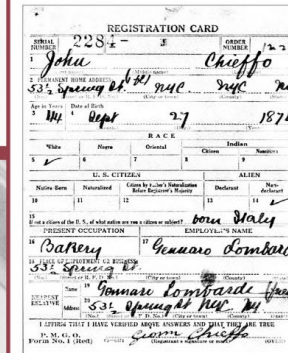 REGISTRATION CARD
SERIAL NUMBER 2284 ORDER NUMBER
1 John Chieffo
2 PERMANENT HOME ADDRESS:
53½ Spring St. NYC NYC
Age in Years Date of Birth
3 44 4 Sept 27 187
RACE
White Negro Oriental Indian
Citizen
5 ✓ 6 7 8 9
U. S. CITIZEN ALIEN
Native Born Naturalized Citizen by Father's Naturalization Before Registrant's Majority Declarant Non-declarant
10 11 12 13 14 ✓
15 If not a citizen of the U. S., of what nation are you a citizen or subject? born Italy
PRESENT OCCUPATION EMPLOYER'S NAME
16 Bakery 17 Gennaro Lombard
18 PLACE OF EMPLOYMENT OR BUSINESS:
53½ Spring St.
NEAREST RELATIVE Name 19 Gennaro Lombardi
Address 20 53½ Spring St NYC NY
I AFFIRM THAT I HAVE VERIFIED ABOVE ANSWERS AND THAT THEY ARE TRUE
P. M. G. O.
Form No. 1 (Red) Chieffo